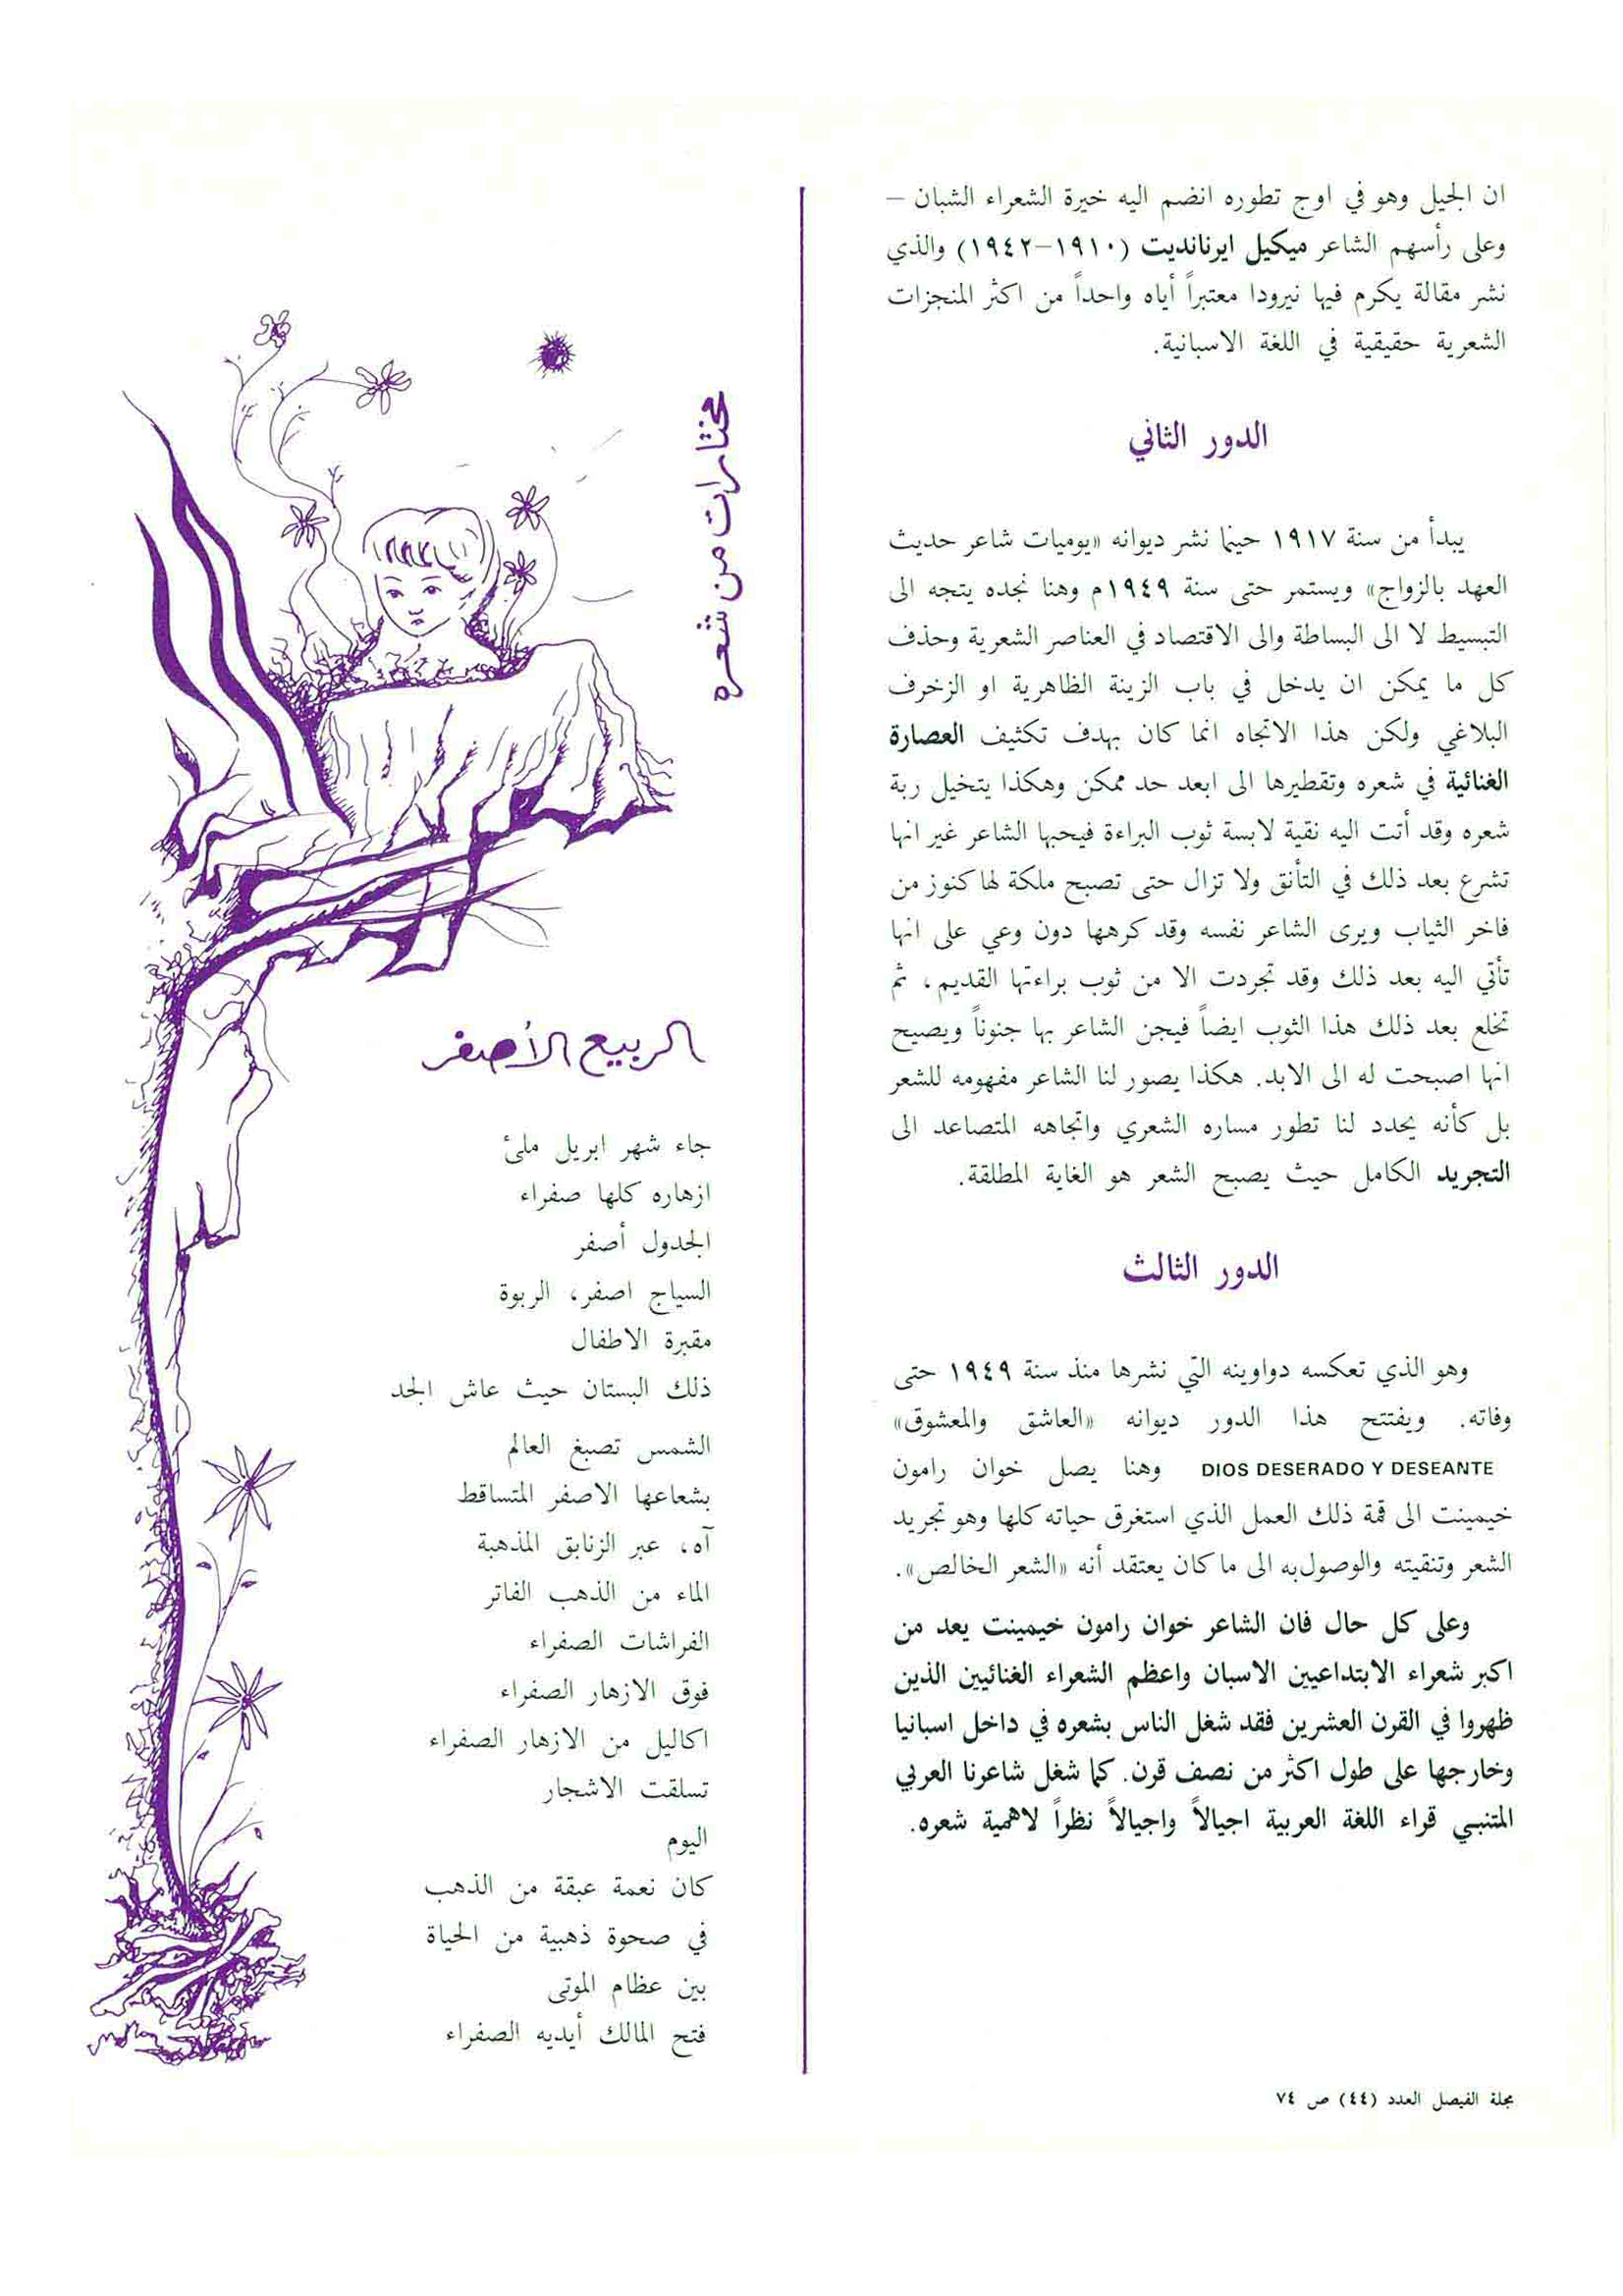 ان الجيل وهو في اوج تطوره انضم اليه خيرة الشعراء الشبان –
وعلى رأسهم الشاعر ميكيل ايرنانديت (١٩١٠–١٩٤٢) والذي
نشر مقالة يكرم فيها نيرودا معتبراً أياه واحداً من اكثر المنجزات
الشعرية حقيقية في اللغة الاسبانية.
الدور الثاني
يبدأ من سنة ١٩١٧ حينما نشر ديوانه «يوميات شاعر حديث
العهد بالزواج» ويستمر حتى سنة ١٩٤٩م وهنا نجده يتجه الى
التبسيط لا الى البساطة والى الاقتصاد في العناصر الشعرية وحذف
كل ما يمكن ان يدخل في باب الزينة الظاهرية او الزخرف
البلاغي ولكن هذا الاتجاه انما كان بهدف تكثيف العصارة
الغنائية في شعره وتقطيرها الى ابعد حد ممكن وهكذا يتخيل ربة
شعره وقد أتت اليه نقية لابسة ثوب البراءة فيحبها الشاعر غير انها
تشرع بعد ذلك في التأنق ولا تزال حتى تصبح ملكة لها كنوز من
فاخر الثياب ويرى الشاعر نفسه وقد كرهها دون وعي على انها
تأتي اليه بعد ذلك وقد تجردت الا من ثوب براءتها القديم، ثم
تخلع بعد ذلك هذا الثوب ايضاً فيجن الشاعر بها جنوناً ويصيح
انها اصبحت له الى الابد. هكذا يصور لنا الشاعر مفهومه للشعر
بل كأنه يحدد لنا تطور مساره الشعري واتجاهه المتصاعد الى
التجريد الكامل حيث يصبح الشعر هو الغاية المطلقة.
الدور الثالث
وهو الذي تعكسه دواوينه التي نشرها منذ سنة ١٩٤٩ حتى
وفاته. ويفتتح هذا الدور ديوانه «العاشق والمعشوق»
DIOS DESERADO Y DESEANTE وهنا يصل خوان رامون
خيمينت الى قمة ذلك العمل الذي استغرق حياته كلها وهو تجريد
الشعر وتنقيته والوصول به الى ما كان يعتقد أنه «الشعر الخالص».
وعلى كل حال فان الشاعر خوان رامون خيمينت يعد من
اكبر شعراء الابتداعيين الاسبان واعظم الشعراء الغنائيين الذين
ظهروا في القرن العشرين فقد شغل الناس بشعره في داخل اسبانيا
وخارجها على طول اكثر من نصف قرن. كما شغل شاعرنا العربي
المتنبي قراء اللغة العربية اجيالاً واجيالاً نظراً لاهمية شعره.
مختارات من شعره
الربيع الأصفر
جاء شهر ابريل ملئ
ازهاره كلها صفراء
الجدول أصفر
السياج اصفر، الربوة
مقبرة الاطفال
ذلك البستان حيث عاش الجد
الشمس تصبغ العالم
بشعاعها الاصفر المتساقط
آه، عبر الزنابق المذهبة
الماء من الذهب الفاتر
الفراشات الصفراء
فوق الازهار الصفراء
اكاليل من الازهار الصفراء
تسلقت الاشجار
اليوم
كان نعمة عبقة من الذهب
في صحوة ذهبية من الحياة
بين عظام الموتى
فتح المالك أيديه الصفراء
مجلة الفيصل العدد (٤٤) ص ٧٤